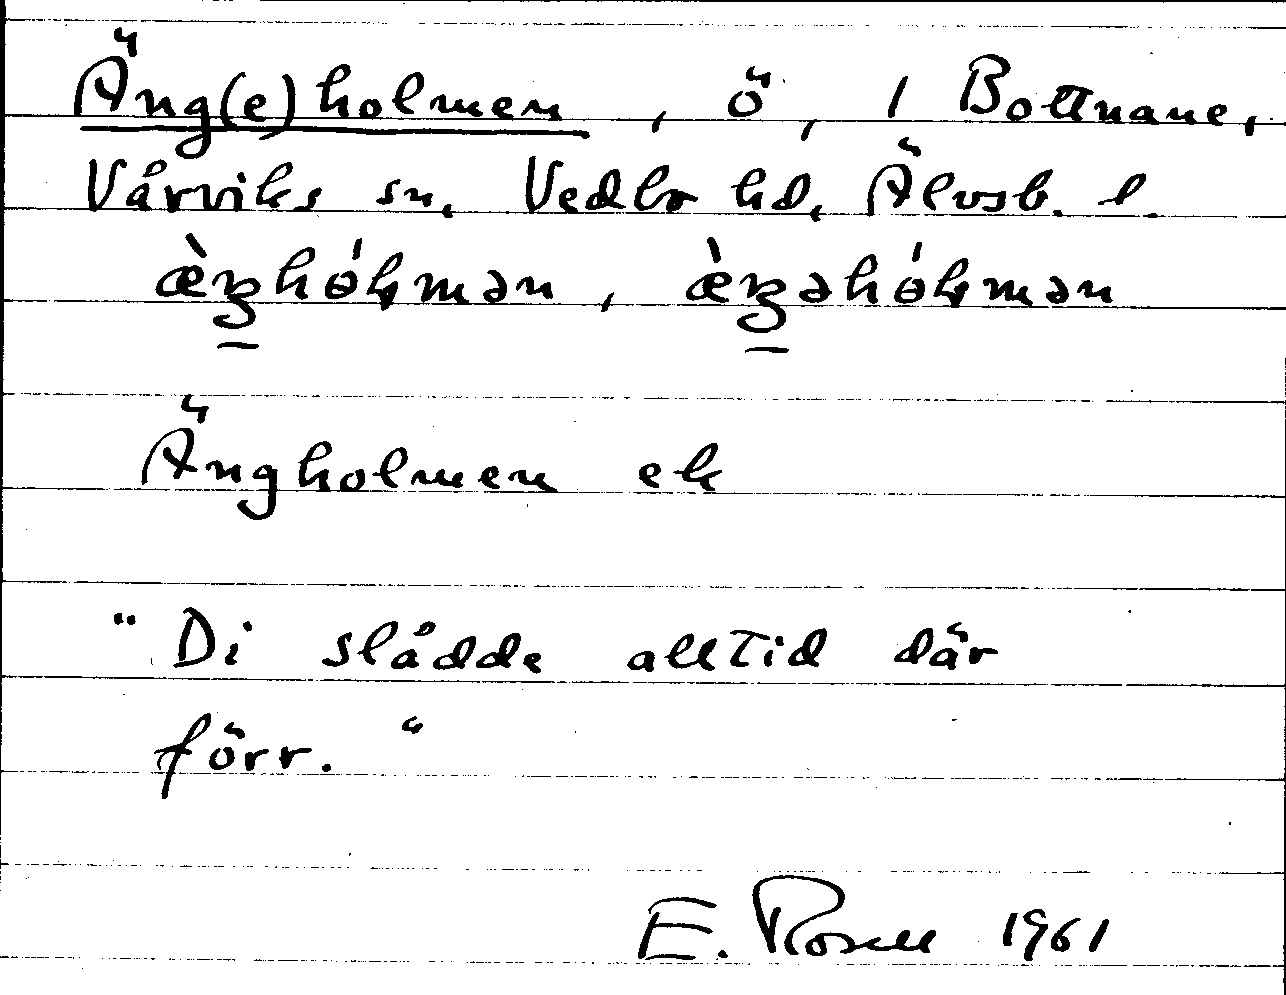 Äng(e)holmen, ö, 1 Bottnane,
Vårviks sn. Vedbo hd, Älvsb. l.
Ängholmen ek
"Di slådde alltid där
förr."
E. Rosell 1961